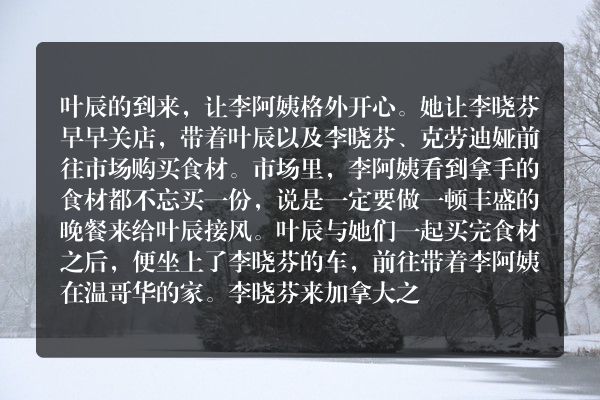 叶辰的到来，让李阿姨格外开心。她让李晓芬
早早关店，带着叶辰以及李晓芬、克劳迪娅前
往市场购买食材。市场里，李阿姨看到拿手的
食材都不忘买一份，说是一定要做一顿丰盛的
晚餐来给叶辰接风。叶辰与她们一起买完食材
之后，便坐上了李晓芬的车，前往带着李阿姨
在温哥华的家。李晓芬来加拿大之